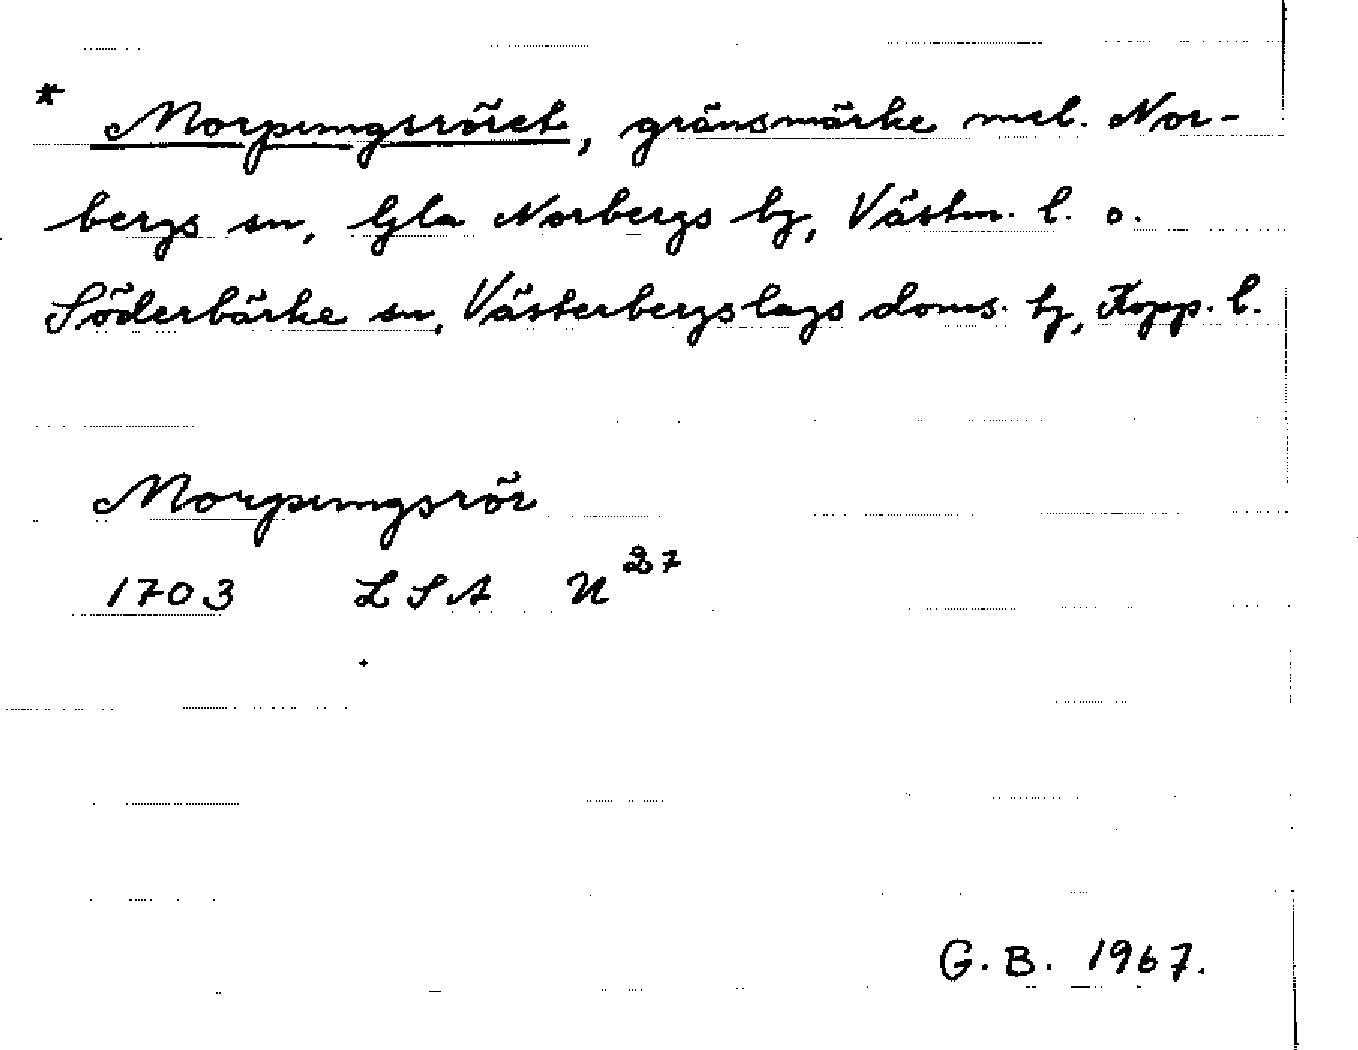 * Morpungsröret, gränsmärke mel. Nor-
bergs sn, Gla Norbergs hg, Västm. l. o.
Söderbärke sn, Västerbergslags doms. hg, Kopp. l.
Morpungsrör
1703 LSA U 27
G. B. 1967.